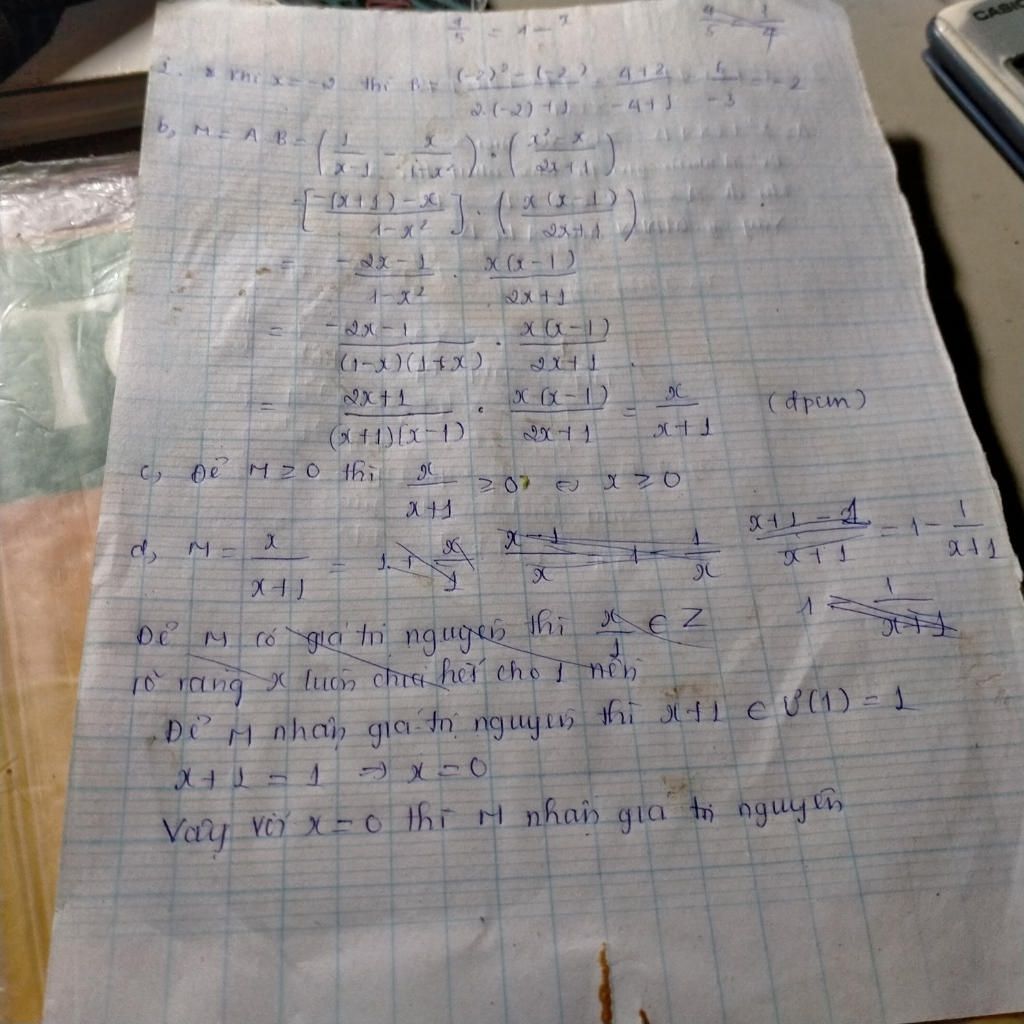 4/5 = 1 -
4/5 1/4
khi x = -2 thì B = ((-2)² - (-2))/(2.(-2)+1) = (4+2)/(-4+1) = 6/-3 = -2
b, M = A.B = (1/(x-1) - x/(1-x²)) . ((x²-x)/(2x+1))
= [(-(x+1)-x)/(1-x²)] . (x(x-1)/(2x+1))
= (-2x-1)/(1-x²) . x(x-1)/(2x+1)
= (-2x-1)/((1-x)(1+x)) . x(x-1)/(2x+1)
= (2x+1)/((x+1)(x-1)) . x(x-1)/(2x+1) = x/(x+1) (đpcm)
c, Để M ≥ 0 thì x/(x+1) ≥ 0 ⇔ x ≥ 0
d, M = x/(x+1) = 1 + x/1 (x-1)/x = 1 - 1/x (x+1-1)/(x+1) = 1 - 1/(x+1)
1 - 1/(x+1)
Để M có giá trị nguyên thì x/1 ∈ Z
rõ ràng x luôn chia hết cho 1 nên
Để M nhận giá trị nguyên thì x+1 ∈ Ư(1) = 1
x+1 = 1 ⇒ x = 0
Vậy với x = 0 thì M nhận giá trị nguyên
CASIO